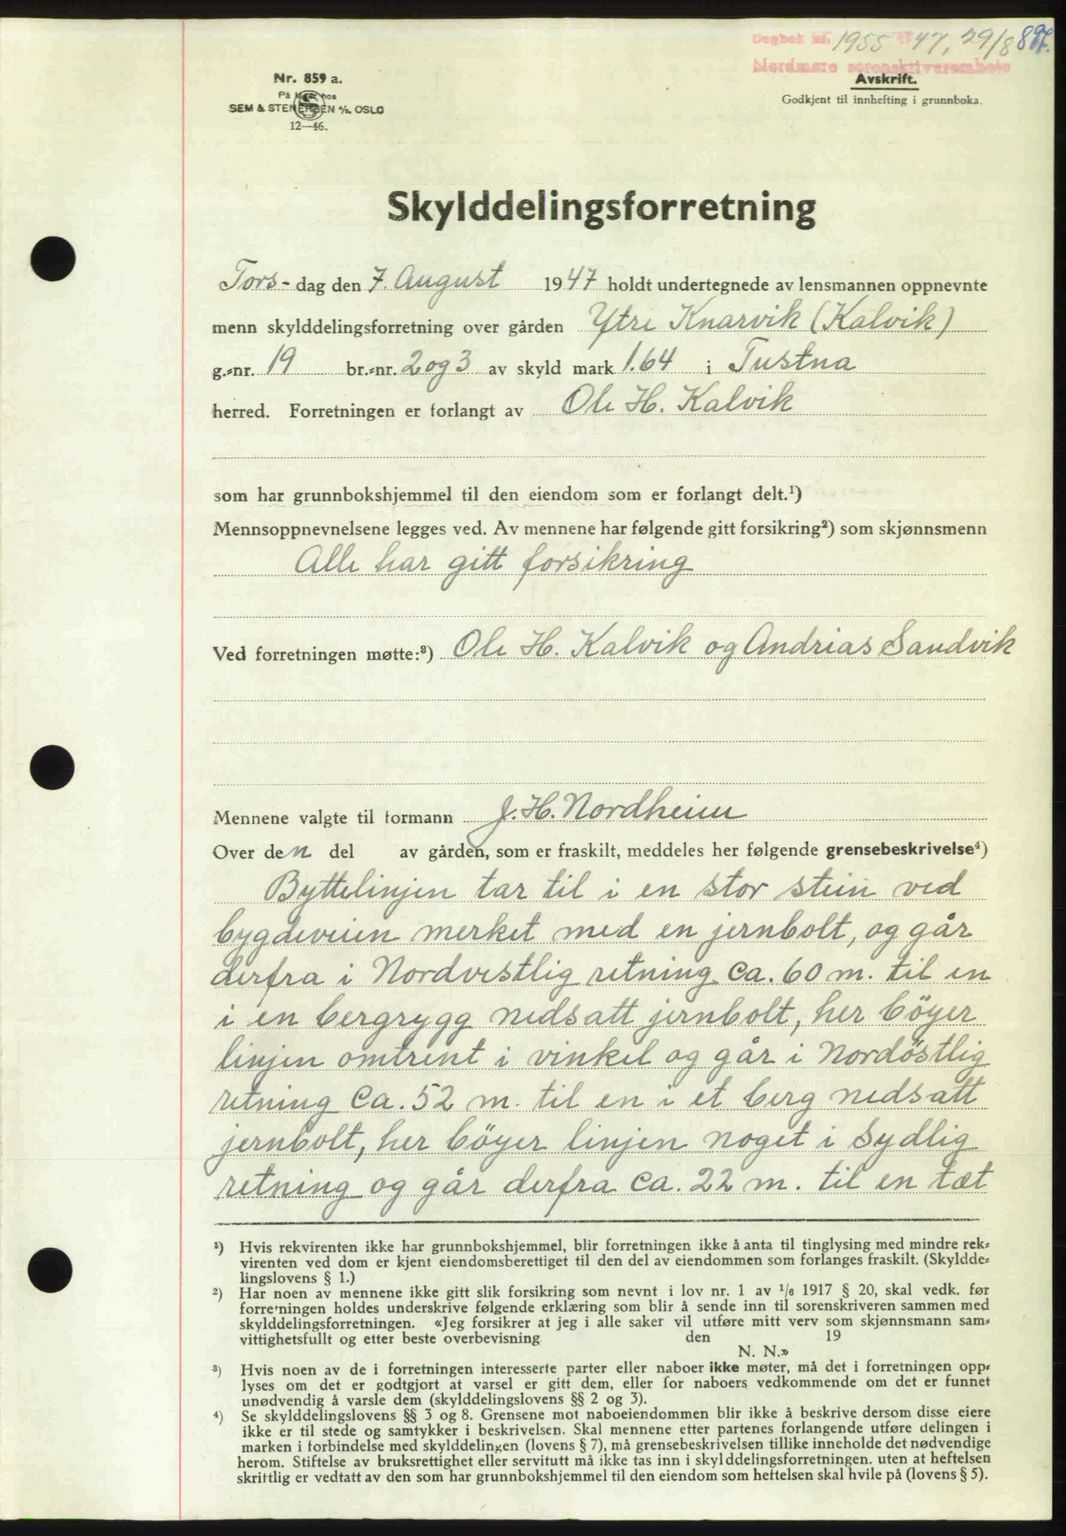 Dagbok nr. 1955 47, 29/8 897.
Nordmøre sorenskriverembete
Nr. 859 a.
På lager hos
SEM & STENERSEN A/S. OSLO
12—46.
Avskrift.
Godkjent til innhefting i grunnboka.
Skylddelingsforretning
Tors- dag den 7. August 1947 holdt undertegnede av lensmannen oppnevnte
menn skylddelingsforretning over gården Ytre Knarvik (Kalvik)
g.-nr. 19 br.-nr. 2 og 3 av skyld mark 1.64 i Tustna
herred. Forretningen er forlangt av Ole H. Kalvik
som har grunnbokshjemmel til den eiendom som er forlangt delt.¹)
Mennsoppnevnelsene legges ved. Av mennene har følgende gitt forsikring²) som skjønnsmenn
Alle har gitt forsikring
Ved forretningen møtte:³) Ole H. Kalvik og Andrias Sandvik
Mennene valgte til formann J. H. Nordheim
Over den del av gården, som er fraskilt, meddeles her følgende grensebeskrivelse⁴)
Byttelinjen tar til i en stor stein ved
bygdeveien merket med en jernbolt, og går
derfra i Nordvestlig retning ca. 60 m. til en
i en bergrygg nedsatt jernbolt, her böyer
linjen omtrent i vinkel og går i Nordöstlig
retning ca. 52 m. til en i et berg nedsatt
jernbolt, her böyer linjen noget i Sydlig
retning og går derfra ca. 22 m. til en tæt
¹) Hvis rekvirenten ikke har grunnbokshjemmel, blir forretningen ikke å anta til tinglysing med mindre rek-
virenten ved dom er kjent eiendomsberettiget til den del av eiendommen som forlanges fraskilt. (Skyldde-
lingslovens § 1.)
²) Har noen av mennene ikke gitt slik forsikring som nevnt i lov nr. 1 av 1/6 1917 § 20, skal vedk. før
forretningen holdes underskrive følgende erklæring som blir å sende inn til sorenskriveren sammen med
skylddelingsforretningen. «Jeg forsikrer at jeg i alle saker vil utføre mitt verv som skjønnsmann sam-
vittighetsfullt og etter beste overbevisning den 19
N. N.»
³) Hvis noen av de i forretningen interesserte parter eller naboer ikke møter, må det i forretningen opp-
lyses om det er godtgjort at varsel er gitt dem, eller for naboers vedkommende om det er funnet
unødvendig å varsle dem (skylddelingslovens §§ 2 og 3).
⁴) Se skylddelingslovens §§ 3 og 8. Grensene mot naboeiendommen blir ikke å beskrive dersom disse eiere
ikke er til stede og samtykker i beskrivelsen. Skal mennene etter partenes forlangende utføre delingen i
marken i forbindelse med skylddelingen (lovens § 7), må grensebeskrivelsen tillike inneholde det nødvendige
herom. Stiftelse av bruksrettighet eller servitutt må ikke tas inn i skylddelingsforretningen. uten at heftelsen
skriftlig er vedtatt av den som har grunnbokshjemmel til den eiendom som heftelsen skal hvile på (lovens § 5).